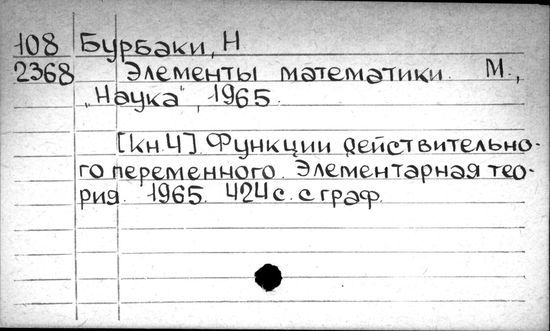 108 Бурбаки, Н
2368 Элементы математики. М.,
„Наука", 1965.
[Кн.4]. Функции действительно-
го переменного. Элементарная тео-
рия. 1965. 424 с. с граф.